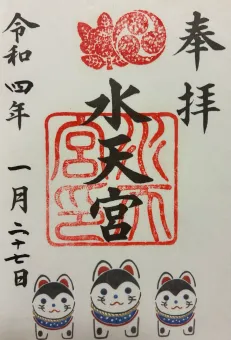 奉拝
水天宮
水天宮印
令和四年 一月二十七日